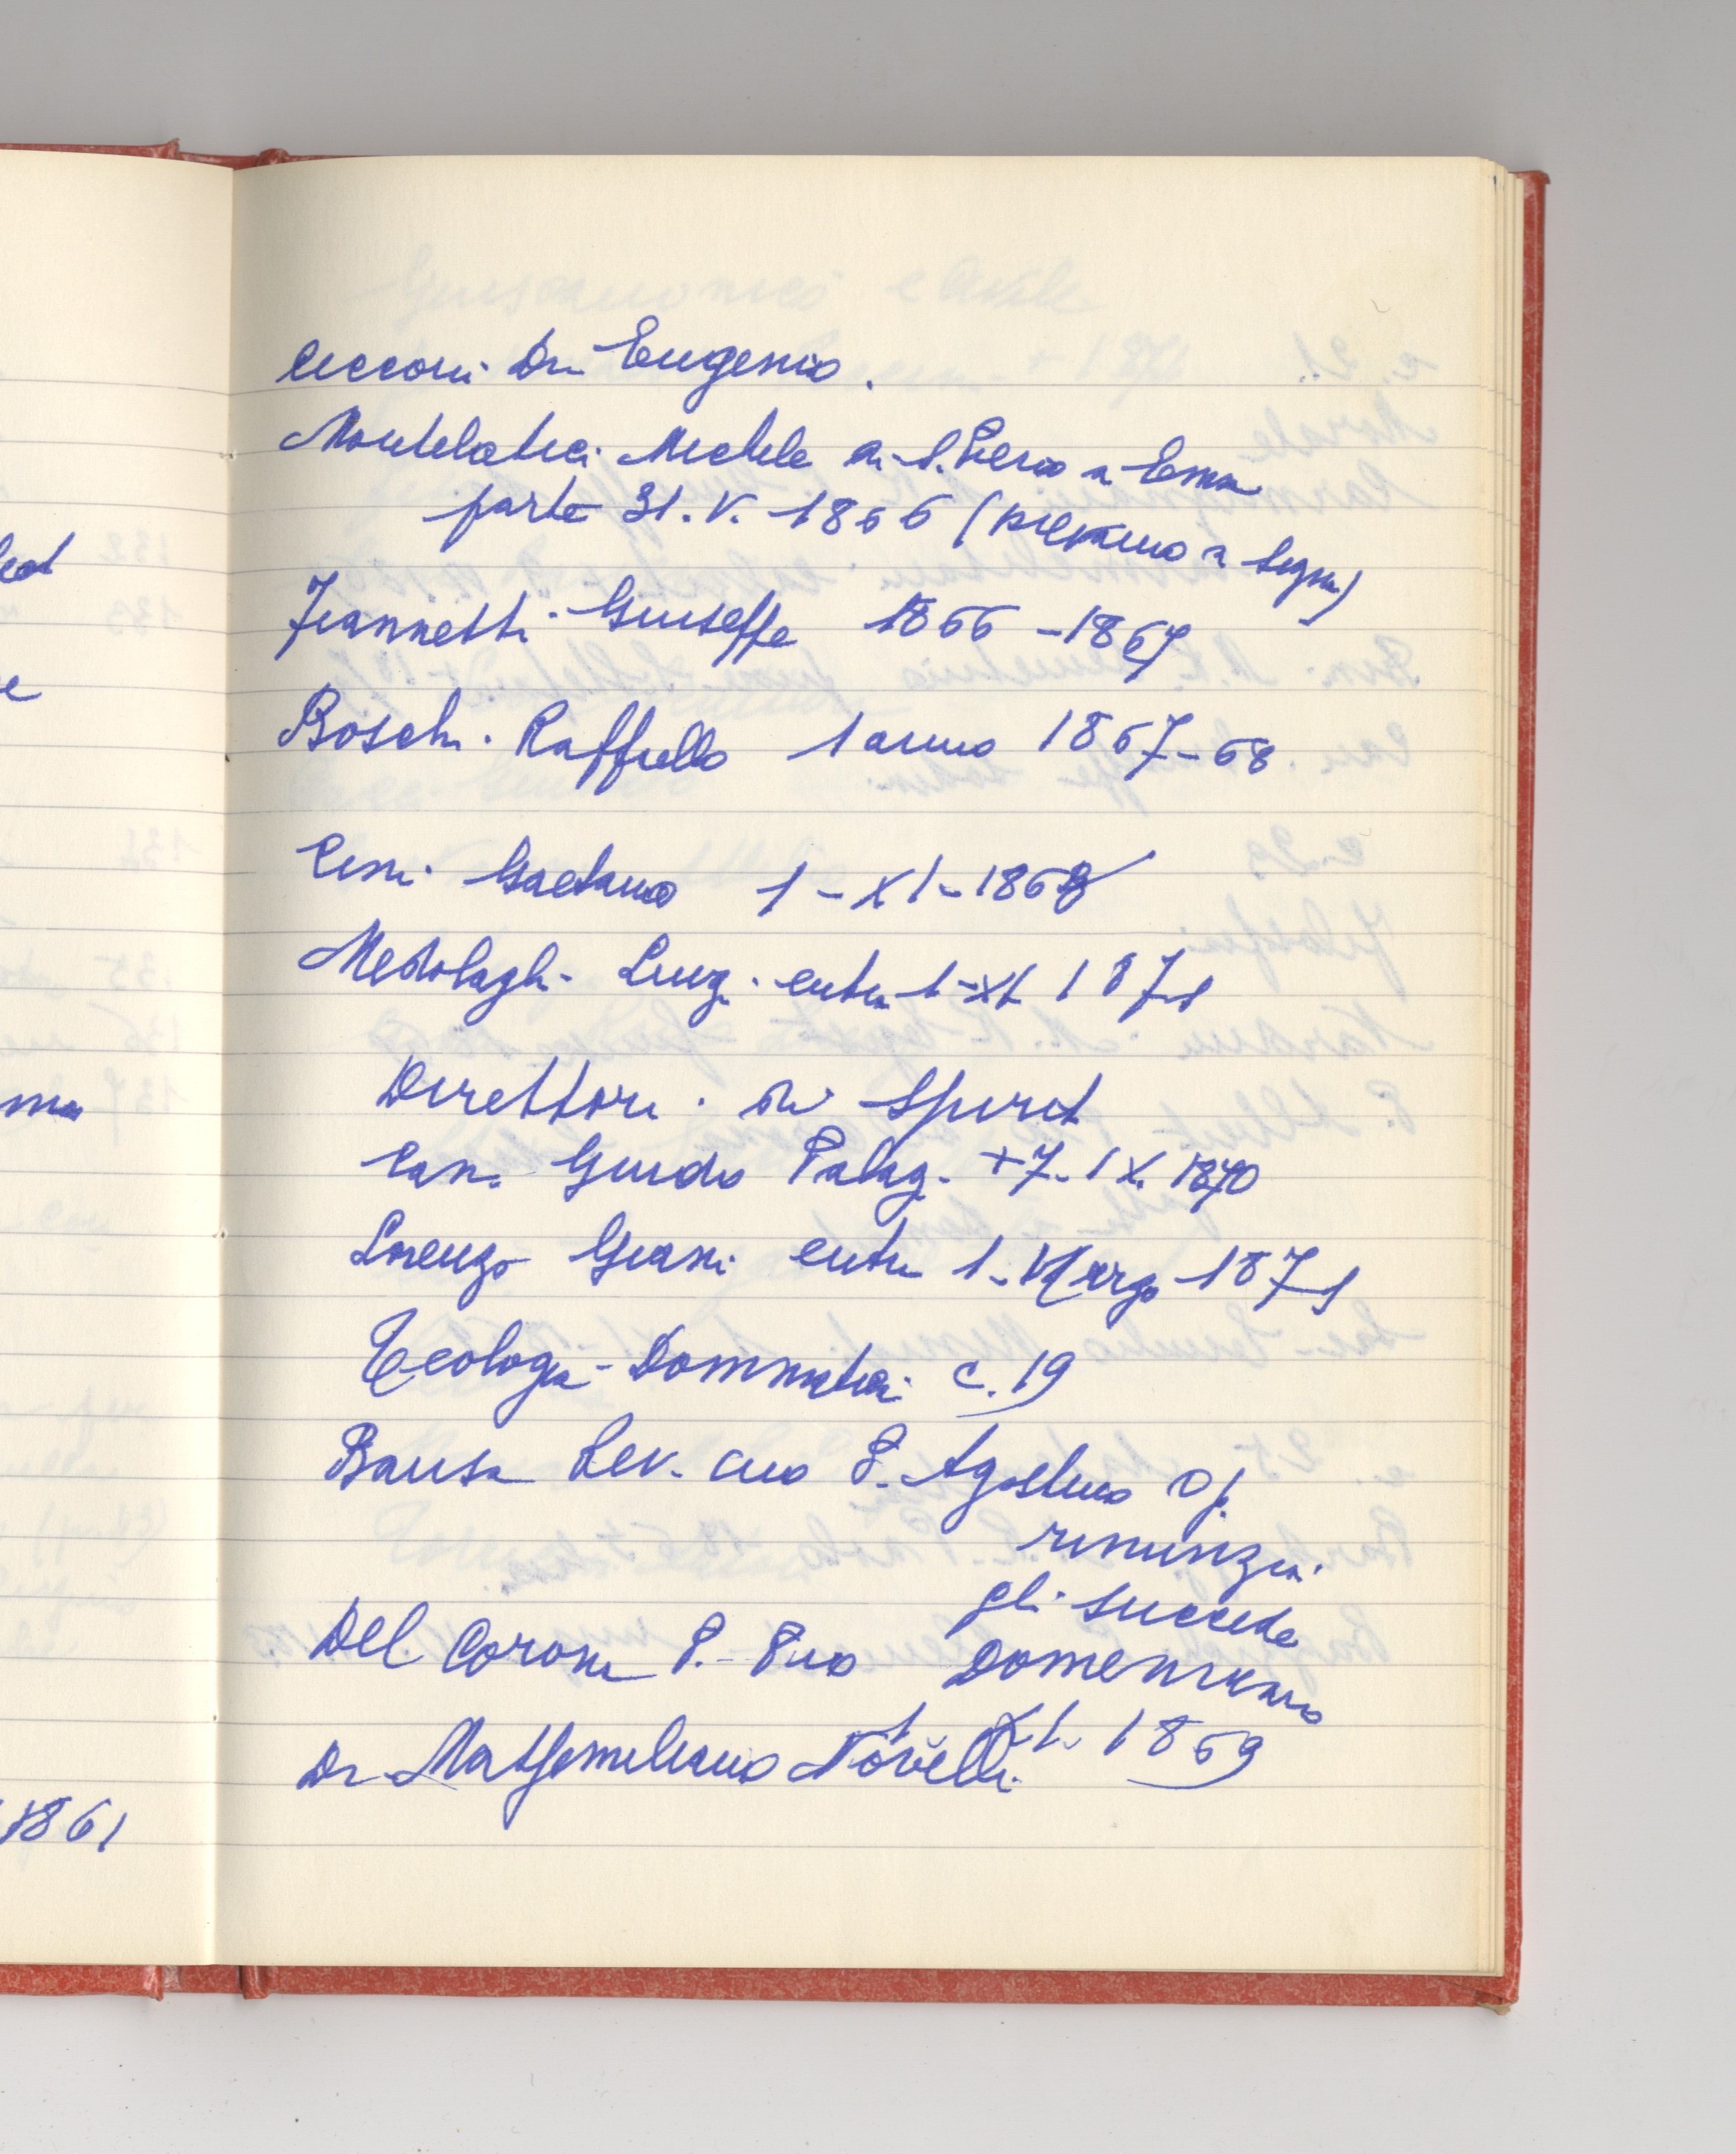 Cecconi Dr Eugenio.
Montelatici Michele di S. Piero a Ema
parte 31. V. 1866 (pievano a Signa)
Jeannetti Giuseppe 1866 - 1867
Boschi Raffaello 1 anno 1867-68
Cesri Gaetano 1-XI-1868
Medolaghi Luigi entra 1-XI 1871
Direttori di Spirit
Can. Guido Palag. +7. IX. 1870
Lorenzo Grassi entra 1. Marzo 1871
Teologia Dommatica c. 19
Bausa Lev. mo P. Agostino Op.
rinunzia.
gli succede
Del Corona P. Pio Domenicano
1 XI. 1869
Dr Massimiliano Novelli
1861